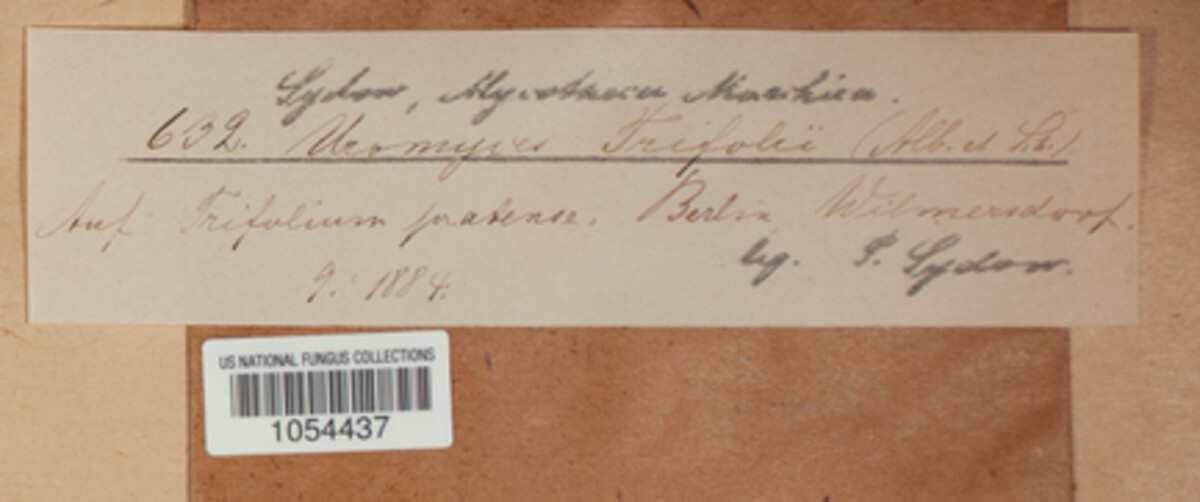 Sydow, Mycotheca Marchica.
632. Uromyces Trifolii (Alb. et S.)
Auf Trifolium pratense. Berlin, Wilmersdorf.
9. 1884.
leg. P. Sydow.
US NATIONAL FUNGUS COLLECTIONS
1054437